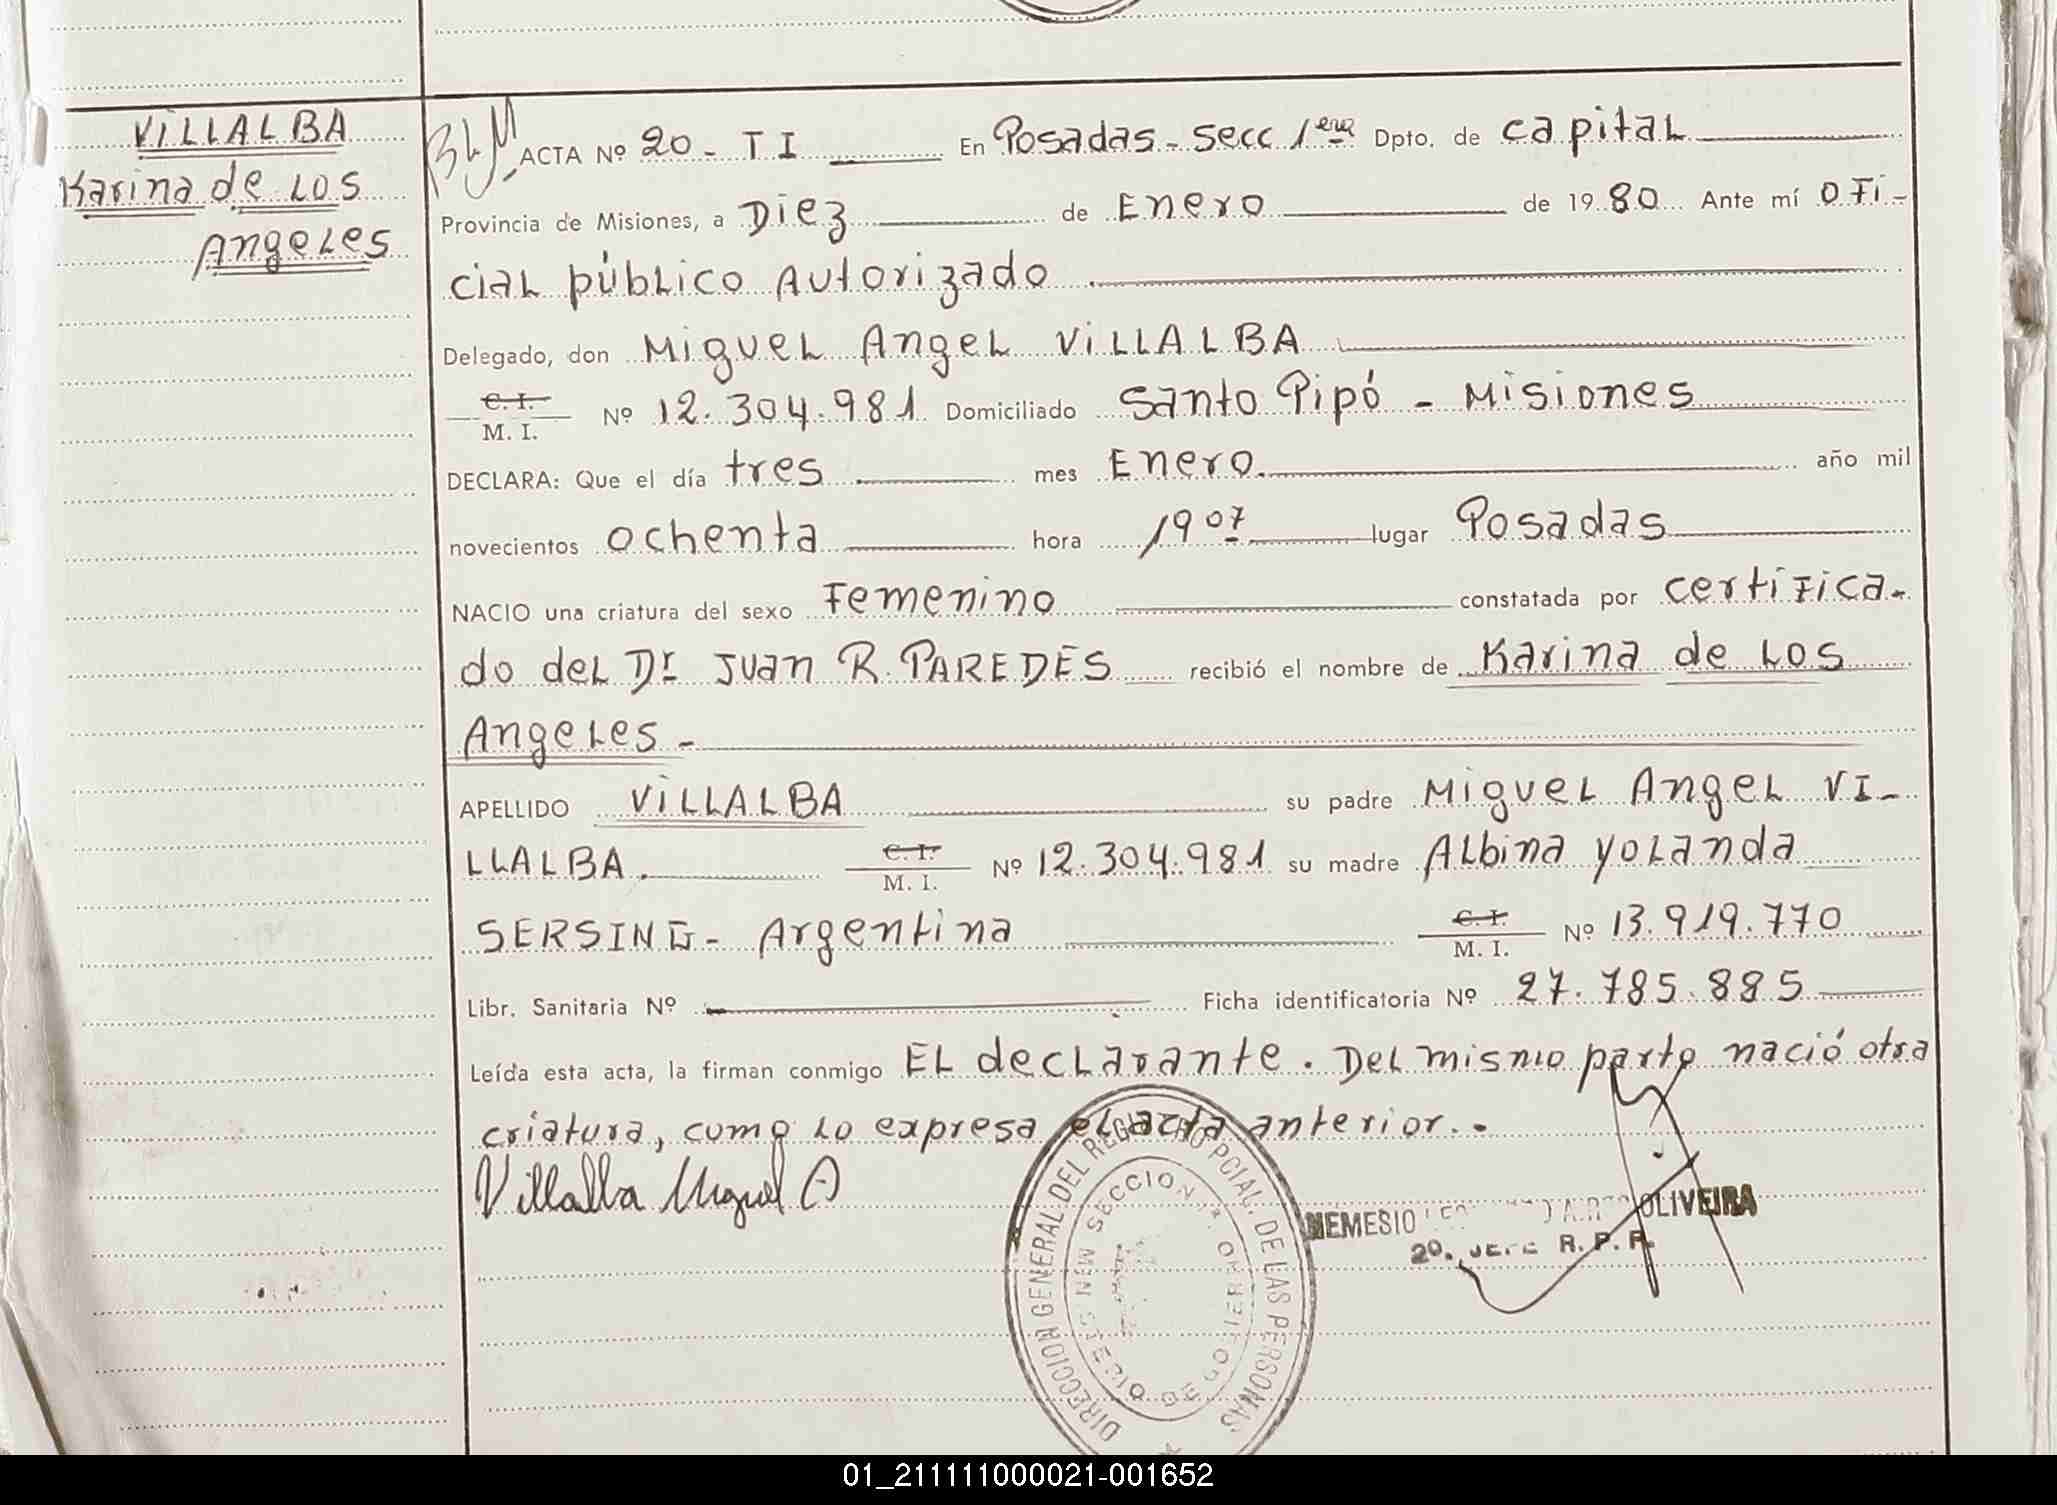 VILLALBA
Karina de Los
Angeles
ACTA Nº 20 - T I En Posadas - Secc 1era Dpto. de capital
Provincia de Misiones, a Diez de Enero de 1980 Ante mí OFi-
cial público Autorizado
Delegado, don Miguel Angel VILLALBA
C. I. M. I. Nº 12.304.981 Domiciliado Santo Pipó - Misiones
DECLARA: Que el día tres mes Enero año mil
novecientos ochenta hora 19 07 lugar Posadas
NACIO una criatura del sexo Femenino constatada por certifica-
do del Dr Juan R. PAREDES recibió el nombre de Karina de Los
Angeles -
APELLIDO VILLALBA su padre Miguel Angel VI-
LLALBA. C. I. M. I. Nº 12.304.981 su madre Albina Yolanda
SERSING - Argentina C. I. M. I. Nº 13.919.770
Libr. Sanitaria Nº Ficha identificatoria Nº 27.785.885
Leída esta acta, la firman conmigo El declarante. Del mismo parto nació otra
criatura, como lo expresa el acta anterior.-
Villalba Miguel A
DIRECCION GENERAL DEL REGISTRO PCIAL. DE LAS PERSONAS
SECCION 1ª
NEMESIO OLIVEIRA
2º. JEFE R. P. P.
01_211111000021-001652